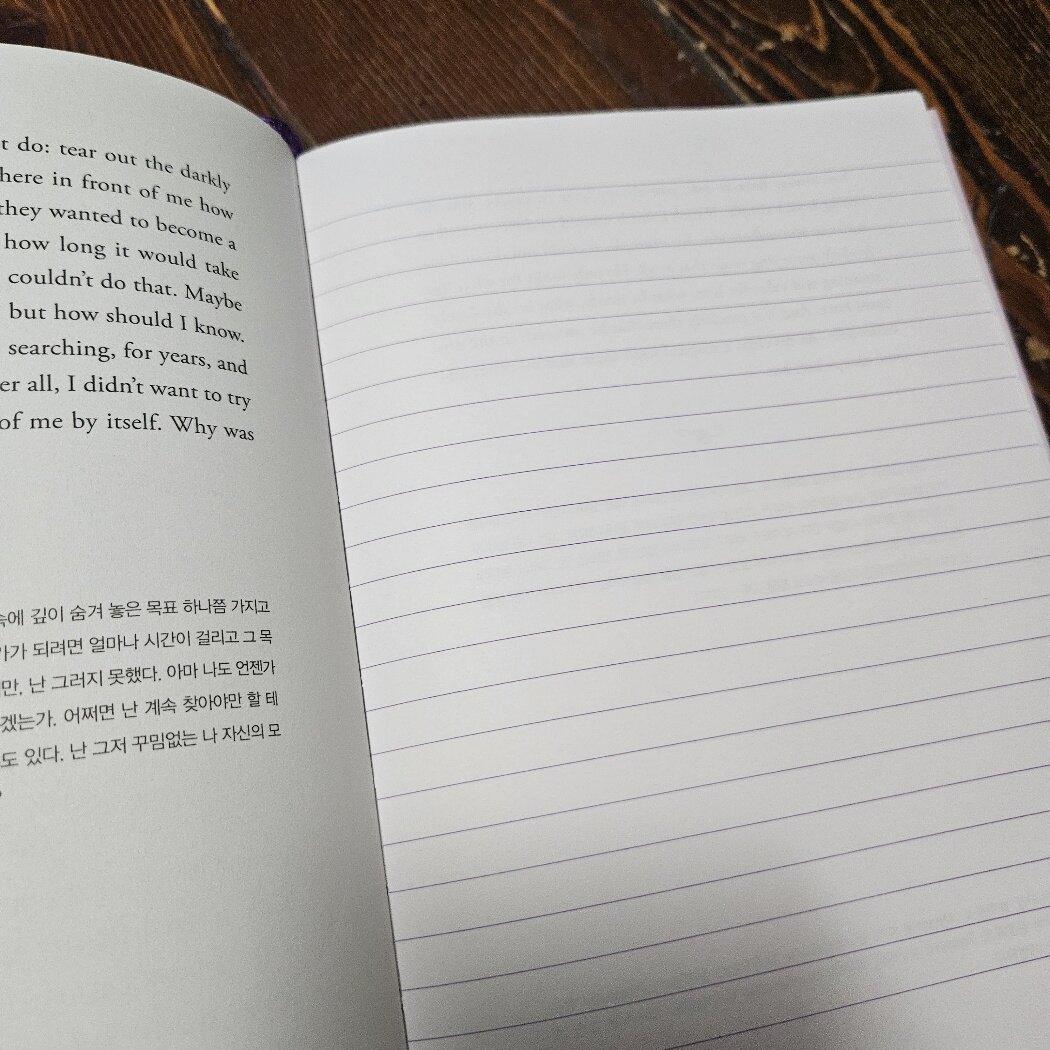 t do: tear out the darkly
here in front of me how
they wanted to become a
how long it would take
couldn't do that. Maybe
but how should I know.
searching, for years, and
er all, I didn't want to try
of me by itself. Why was
속에 깊이 숨겨 놓은 목표 하나쯤 가지고
가가 되려면 얼마나 시간이 걸리고 그 목
만, 난 그러지 못했다. 아마 나도 언젠가
겠는가. 어쩌면 난 계속 찾아야만 할 테
도 있다. 난 그저 꾸밈없는 나 자신의 모